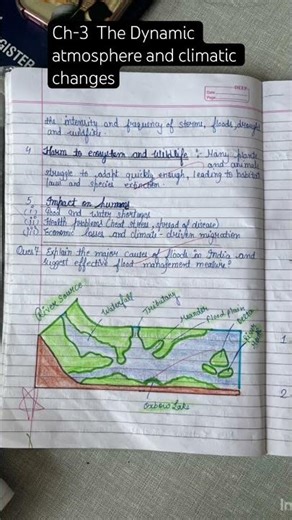 Ch-3 The Dynamic
atmosphere and climatic
changes
REGISTER
Date
Page
the intensity and frequency of storms, floods, droughts
and wildfire
4 Harm to ecosystem and Wildlife : Many plants
and animals
struggle to adapt quickly enough, leading to habitat
loss and species extinction
5. Impact on humans
(i) Food and water shortages
(ii) Health problems (heat stress, spread of disease)
(iii) Economic losses and climate-driven migration
Ques 7 Explain the major causes of floods in India and
suggest effective flood management measure?
River source
Waterfall
Tributary
Meander
flood plain
Delta
Oxbow Lake
1
2
In